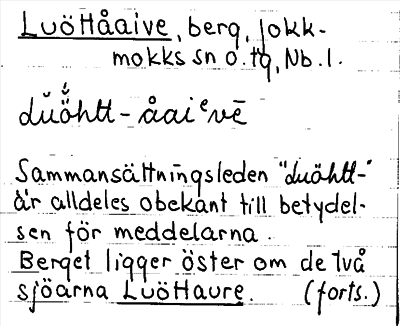 Luöttåaive, berg, Jokk-
mokks sn o. tg, Nb. l.
dŭö̆htt - åaiᵉvē
Sammansättningsleden "duöhtt-"
är alldeles obekant till betydel-
sen för meddelarna.
Berget ligger öster om de två
sjöarna Luöttaure. (forts.)